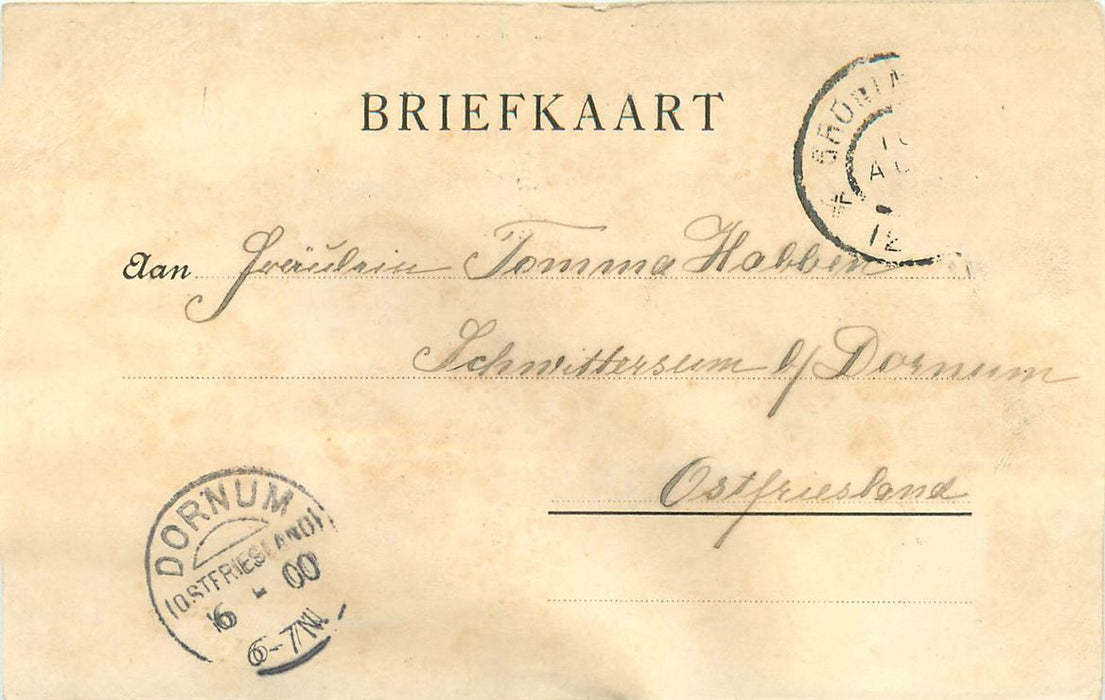 BRIEFKAART
Aan Fräulein Tomma Habben
Schwittersum b/ Dornum
Ostfriesland
DORNUM
(OSTFRIESLAND)
16 - 00
6-7N.